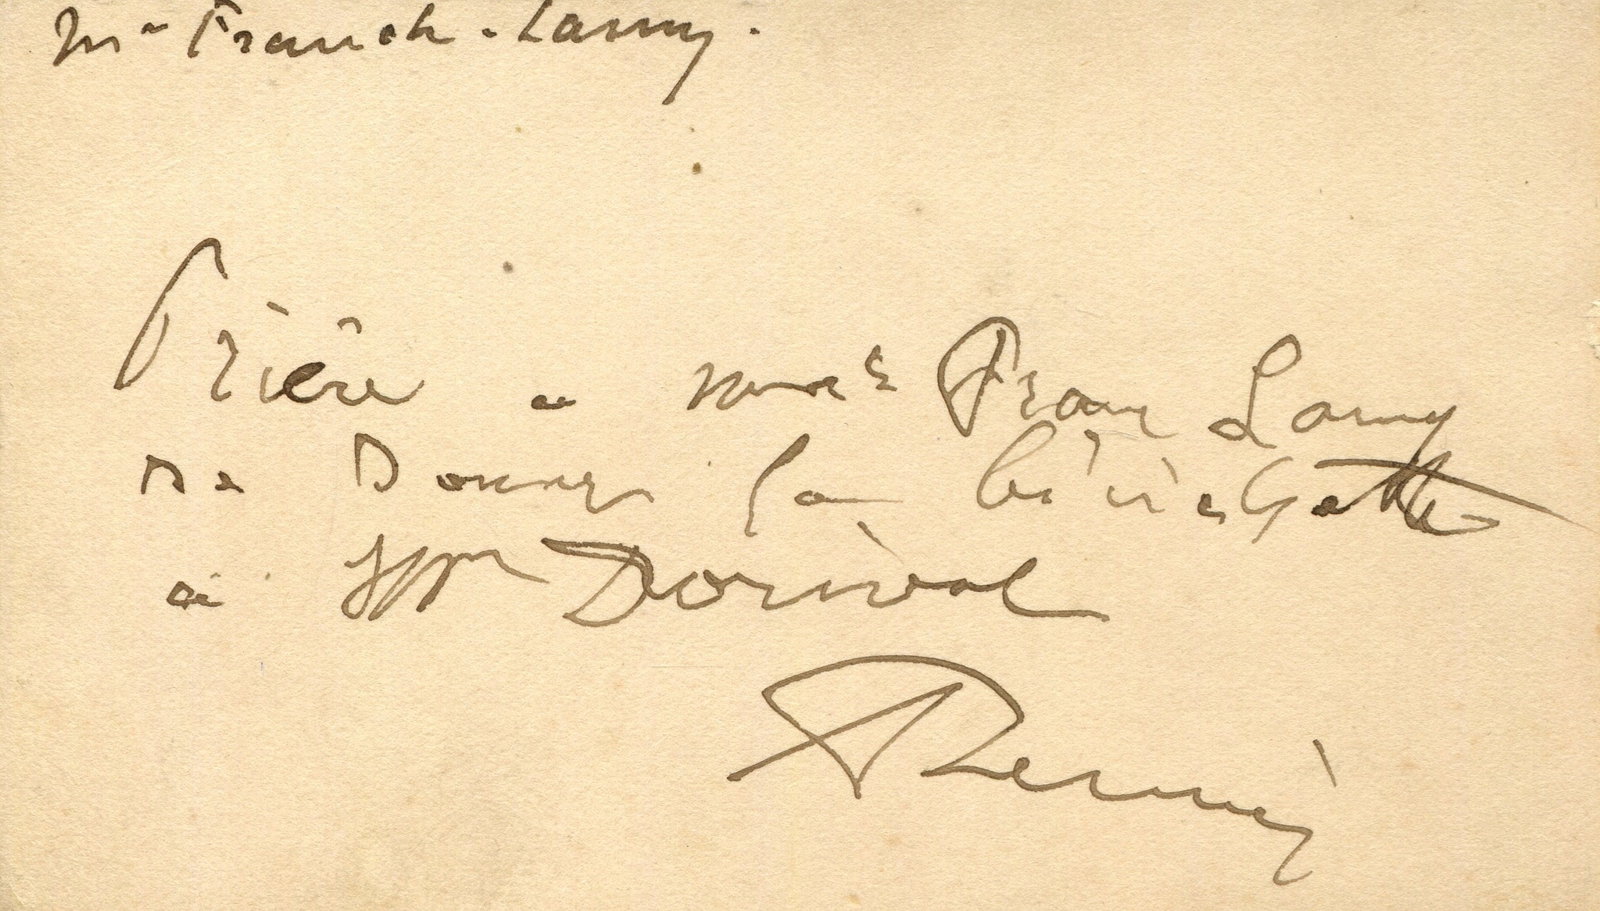 Mr Franck-Lamy.
Prière a Franc Lamy
De Donner la bicyclette
à Dorival